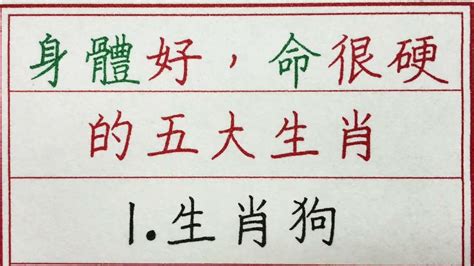 身體好，命很硬
的五大生肖
1.生肖狗